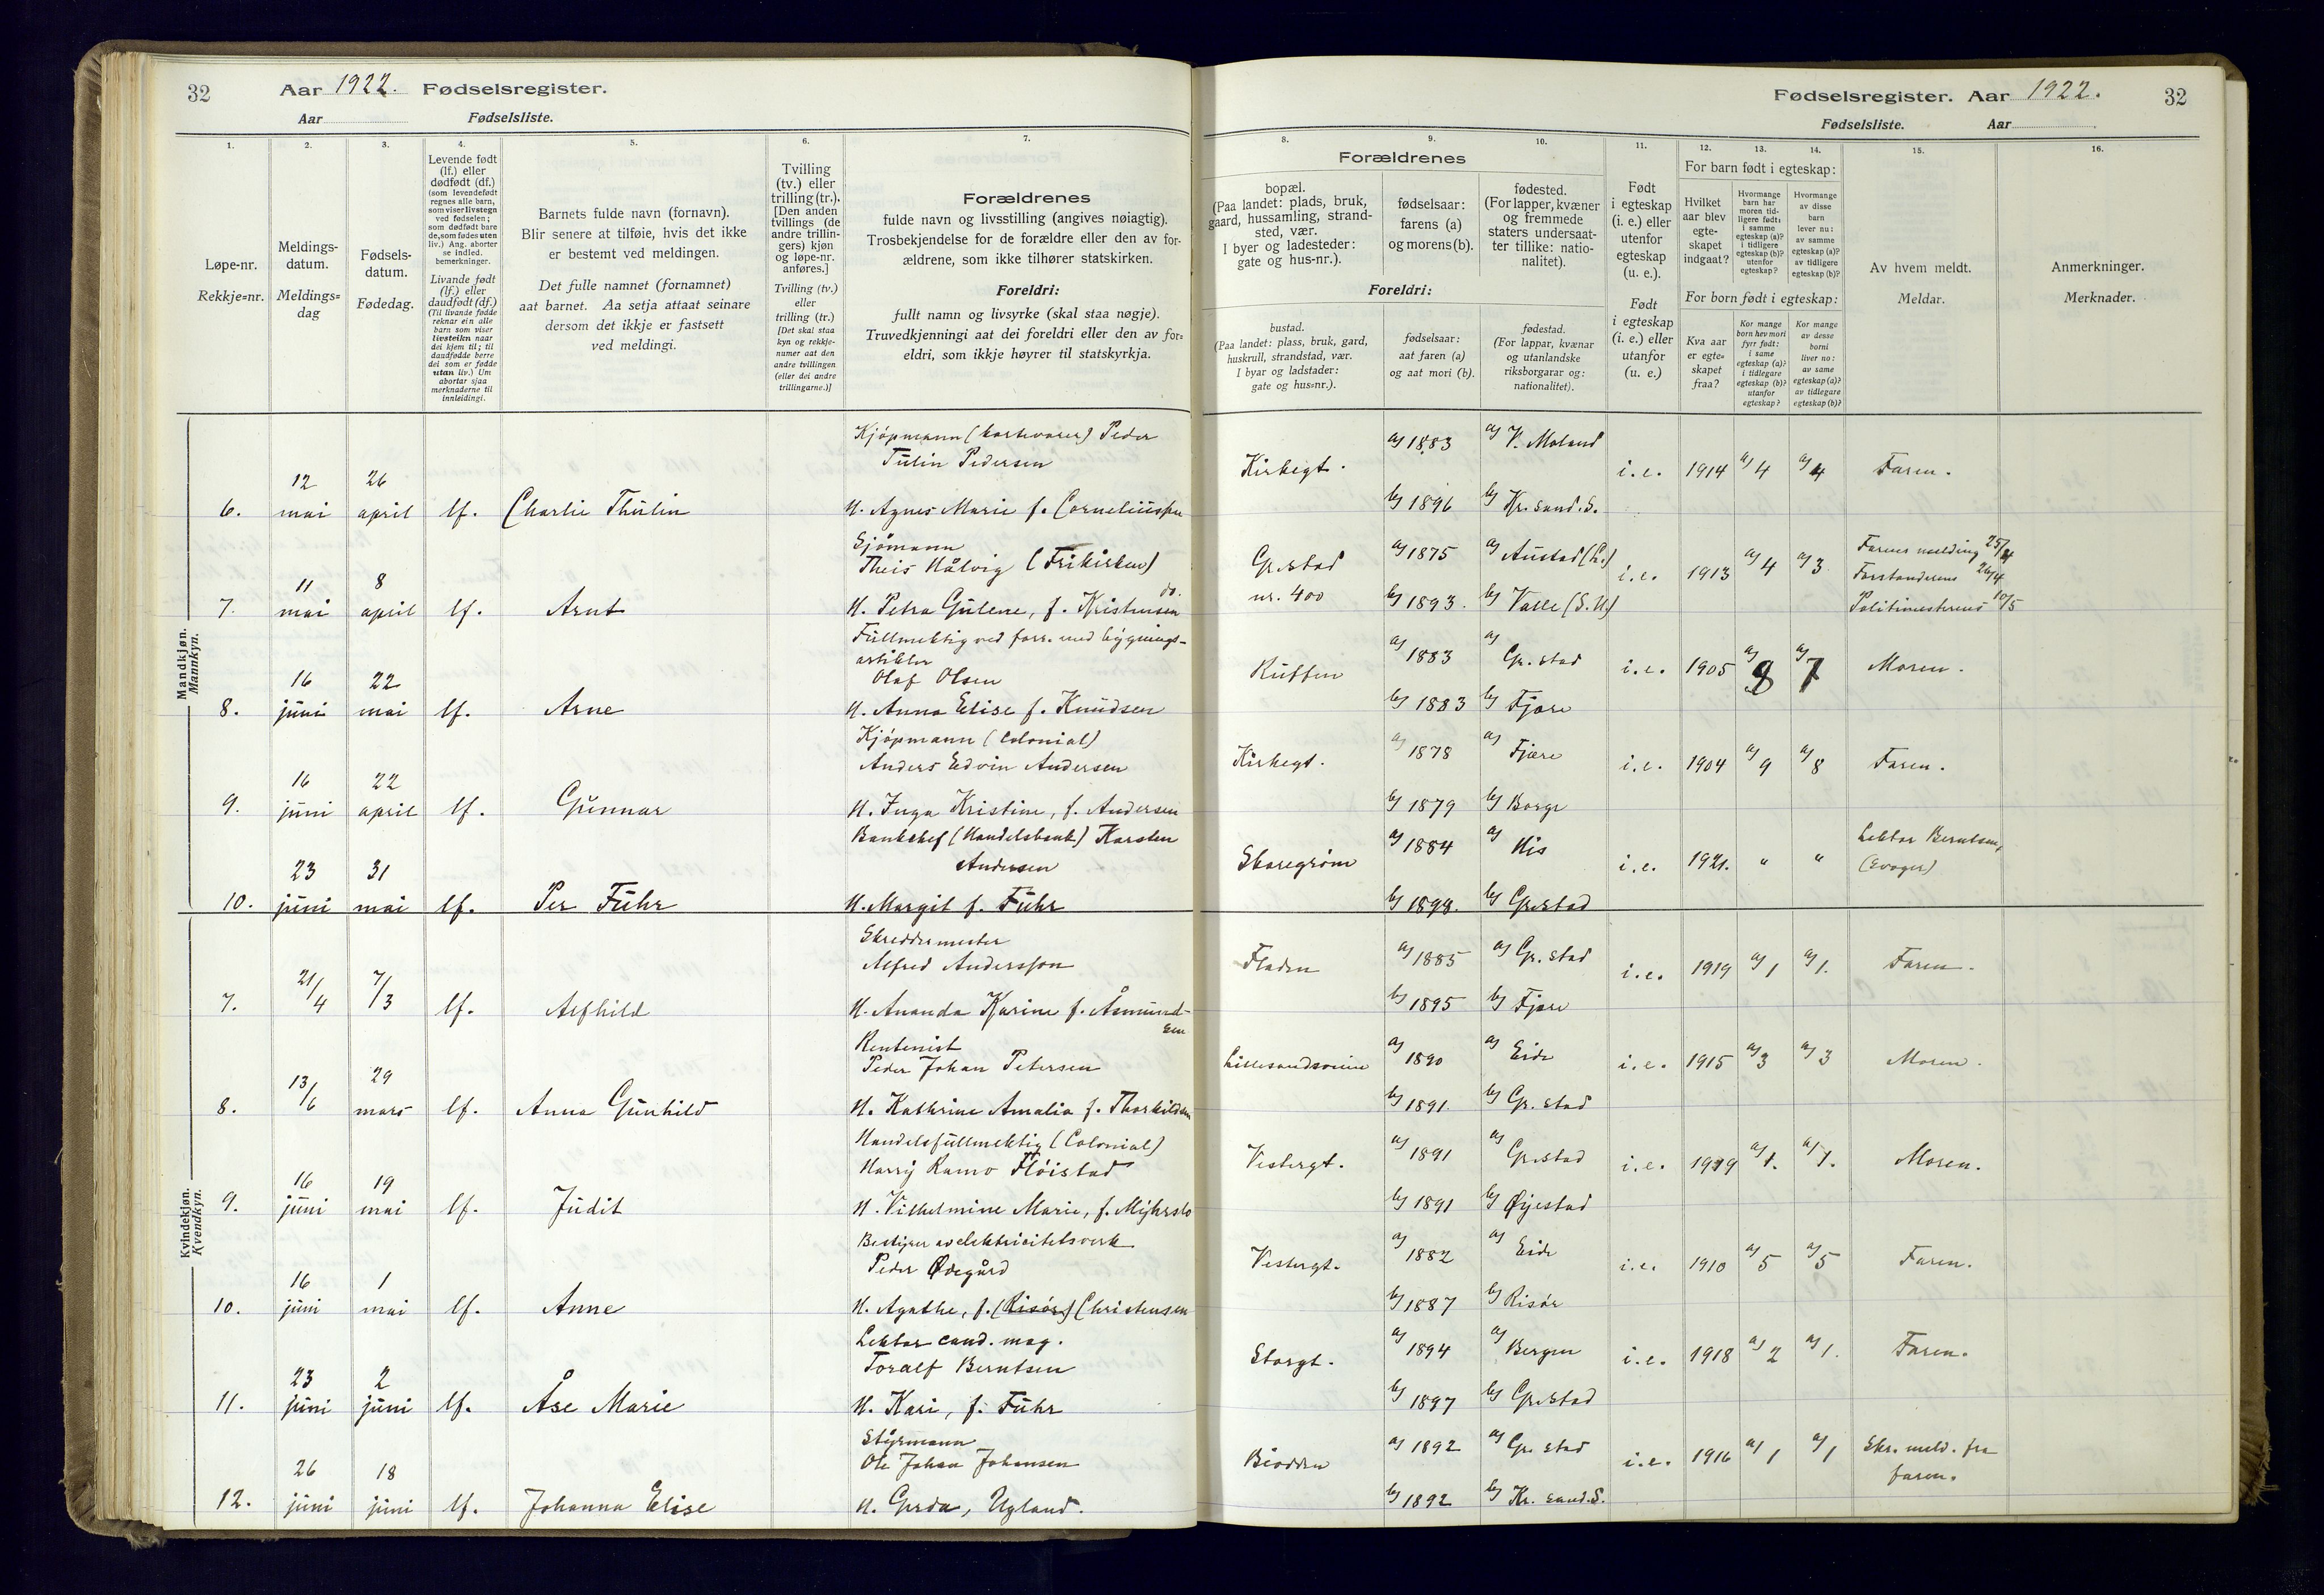 32 Aar 1922. Fødselsregister.
Aar Fødselsliste.
Fødselsregister. Aar 1922. 32
Fødselsliste. Aar
1. 2. 3. 4. 5. 6. 7.
Løpe-nr.
Rekkje=nr.
Meldings-
datum.
Meldings=
dag
Fødsels-
datum.
Fødedag.
Levende født
(lf.) eller
dødfødt (df.)
(som levendefødt
regnes alle barn,
som viser livstegn
ved fødselen;
som dødfødt bare
de, som fødes uten
liv.) Ang. aborter
se indled.
bemerkninger.
Livande født
(lf.) eller
daudfødt (df.)
(Til livande fødde
reknar ein alle
barn som viser
livsteikn naar
dei kjem til; til
daudfødde berre
dei som er fødde
utan liv.) Um
abortar sjaa
merknaderne til
innleidingi.
Barnets fulde navn (fornavn).
Blir senere at tilføie, hvis det ikke
er bestemt ved meldingen.
Det fulle namnet (fornamnet)
aat barnet. Aa setja attaat seinare
dersom det ikkje er fastsett
ved meldingi.
Tvilling
(tv.) eller
trilling (tr.).
[Den anden
tvillings (de
andre trillin-
gers) kjøn
og løpe-nr.
anføres.]
Tvilling (tv.)
eller
trilling (tr.)
[Det skal staa
kyn og rekkje-
numer aat den
andre tvillingen
(eller dei andre
trillingarne.)]
Forældrenes
fulde navn og livsstilling (angives nøiagtig).
Trosbekjendelse for de forældre eller den av for-
ældrene, som ikke tilhører statskirken.
Foreldri:
fullt namn og livsyrke (skal staa nøgje).
Truvedkjenningi aat dei foreldri eller den av for=
eldri, som ikkje høyrer til statskyrkja.
8. 9. 10. 11. 12. 13. 14. 15. 16.
Forældrenes
bopæl.
(Paa landet: plads, bruk,
gaard, hussamling, strand-
sted, vær.
I byer og ladesteder:
gate og hus-nr.).
fødselsaar:
farens (a)
og morens (b).
fødested.
(For lapper, kvæner
og fremmede
staters undersaat-
ter tillike: natio-
nalitet).
Foreldri:
bustad.
(Paa landet: plass, bruk, gard,
huskrull, strandstad, vær.
I byar og ladstader:
gate og hus=nr.).
fødselsaar:
aat faren (a)
og aat mori (b).
fødestad.
(For lappar, kvænar
og utanlandske
riksborgarar og:
nationalitet).
Født
i egteskap
(i. e.) eller
utenfor
egteskap
(u. e.).
Født
i egteskap
(i. e.) eller
utanfor
(u. e.)
For barn født i egteskap:
Hvilket
aar blev
egte-
skapet
indgaat?
Hvormange
barn har
moren tid-
ligere født:
i samme
egteskap (a)?
i tidligere
egteskap (b)?
utenfor
egteskap?
Hvormange
av disse
barn
lever nu:
av samme
egteskap (a)?
av tidligere
egteskap (b)?
For born født i egteskap:
Kva aar
er egte=
skapet
fraa?
Kor mange
born hev mori
fyrr født:
i same
egteskap (a)?
i tidlegare
egteskap (b)?
utanfor
egteskap?
Kor mange
av desse
borni
liver no:
av same
egteskap (a)?
av tidlegare
egteskap (b)?
Av hvem meldt.
Meldar.
Anmerkninger.
Merknader.
Mandkjøn.
Mannkyn.
Kjøpmann (kortevarer) Peder
Tulin Pedersen
6. 12 mai 26 april lf. Charlie Thulin H. Agnes Marie f. Corneliussen
Kirkegt. a) 1883 a) V. Moland i.e. 1914 a) 4 a) 4 Faren.
b) 1896 b) Kr. sand. S.
Sjømann
Theis Hålvig (Frikirken)
do.
7. 11 mai 8 april lf. Arnt H. Petra Gulene, f. Kristensen
Gr.stad a) 1875 a) Austad (L.) i.e. 1913 a) 4 a) 3 Farens melding 25/4
Forstanderens 26/4
nr. 400 b) 1893. b) Valle (S.U.) Politimesterens 10/5
Fullmektig ved forr. med bygnings-
artikler
Olaf Olsen
8. 16 juni 22 mai lf. Arne H. Anna Elise f. Knudsen
a) 1883 a) Gr. stad i.e. 1905 a) 8 a) 7 Moren.
b) 1883 b) Fjære
Kjøpmann (Colonial)
Anders Edvin Andersen
9. 16 juni 22 april lf. Gunnar H. Inga Kristine, f. Andersen
Kirkegt. a) 1878 a) Fjære i.e. 1904 a) 9 a) 8 Faren.
b) 1879 b) Borge
Bankchef (Handelsbank) Karsten
Andersen
10. 23 juni 31 mai lf. Per Fuhr H. Margit f. Fuhr
Skaregrøm a) 1884 a) His i.e. 1921. " " Lektor Berntsen,
(Svoger)
b) 1898. b) Gr.stad
Kvindekjøn.
Kvendkyn.
Skreddermester
Alfred Anderssen
7. 21/4 7/3 lf. Alfhild H. Ananda Karine f. Åsmund-
sen
Fladen a) 1885 a) Gr. stad i.e. 1919 a) 1 a) 1. Faren.
b) 1895 b) Fjære
Rentenist
Peder Johan Petersen
8. 13/6 29 mars lf. Anna Gunhild H. Kathrine Amalia f. Thorkildsen
Lillesandsveien a) 1890 a) Eide i.e. 1915 a) 3 a) 3 Moren.
b) 1891. b) Gr. stad
Handelsfullmektig (Colonial)
Harry Ramo Fløistad
9. 16 juni 19 mai lf. Judit H. Vilhelmine Marie, f.
Vestergt. a) 1891 a) Gr.stad i.e. 1919 a) 1. a) 1. Moren.
b) 1891 b) Øyestad
Bestyrer av elektricitetsverk
Peder Ødegård
10. 16 juni 1 mai lf. Anne H. Agathe, f. (Risør) Christensen
Vestergt. a) 1882 a) Eide i.e. 1910 a) 5 a) 5 Faren.
b) 1887 b) Risør
Lektor cand. mag.
Toralf Berntsen
11. 23 juni 2 juni lf. Åse Marie H. Kari, f. Fuhr
Storgt. a) 1894 a) Bergen i.e. 1918 a) 2 a) 1. Faren.
b) 1897 b) Gr.stad
Styrmann
Ole Johan Johansen
12. 26 juni 18 juni lf. Johanna Elise H. Gerda, Ugland.
Biodden a) 1892 a) Gr. stad i.e. 1916 a) 1 a) 1 Skr. meld. fra
faren.
b) 1892 b) Kr. sand. S.